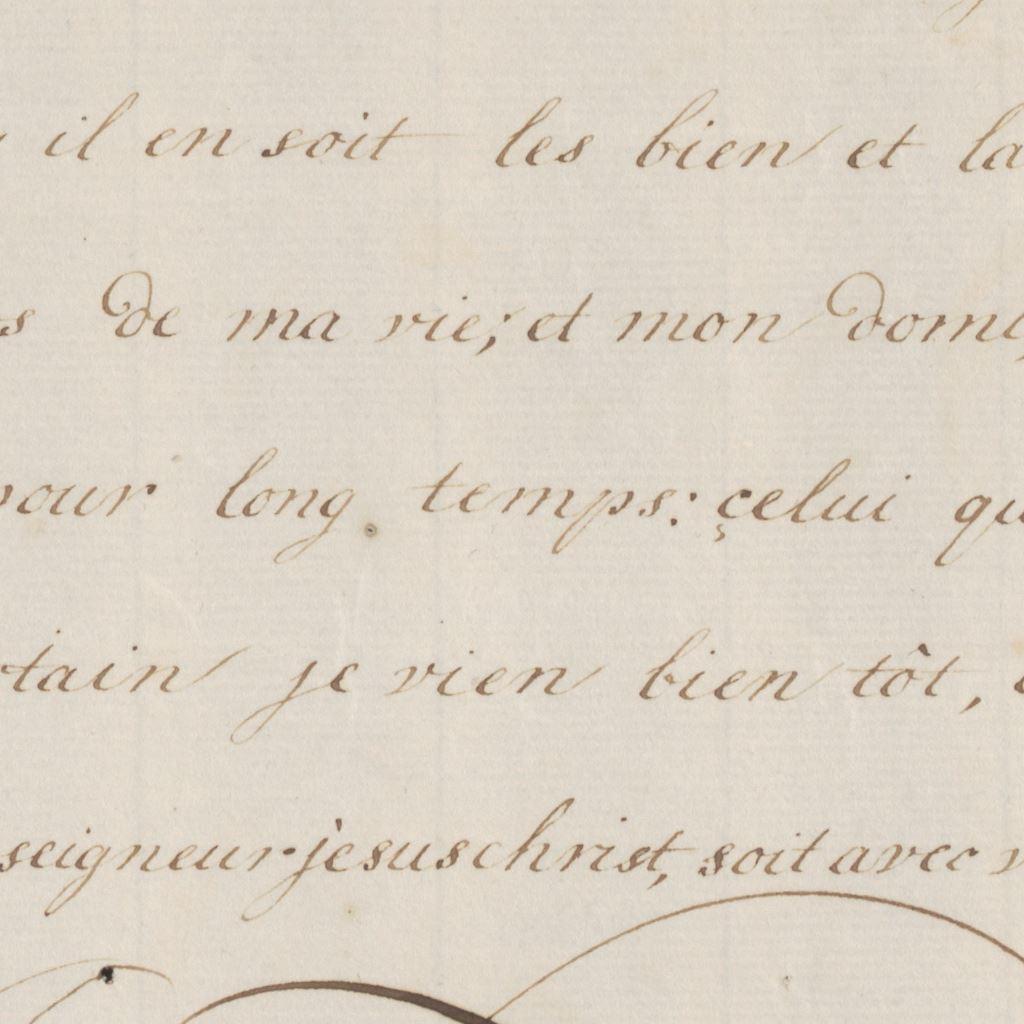 il en soit les bien et la
de ma vie; et mon domi
pour long temps: çelui qu
tain je vien bien tôt,
seigneur jesus christ, soit avec